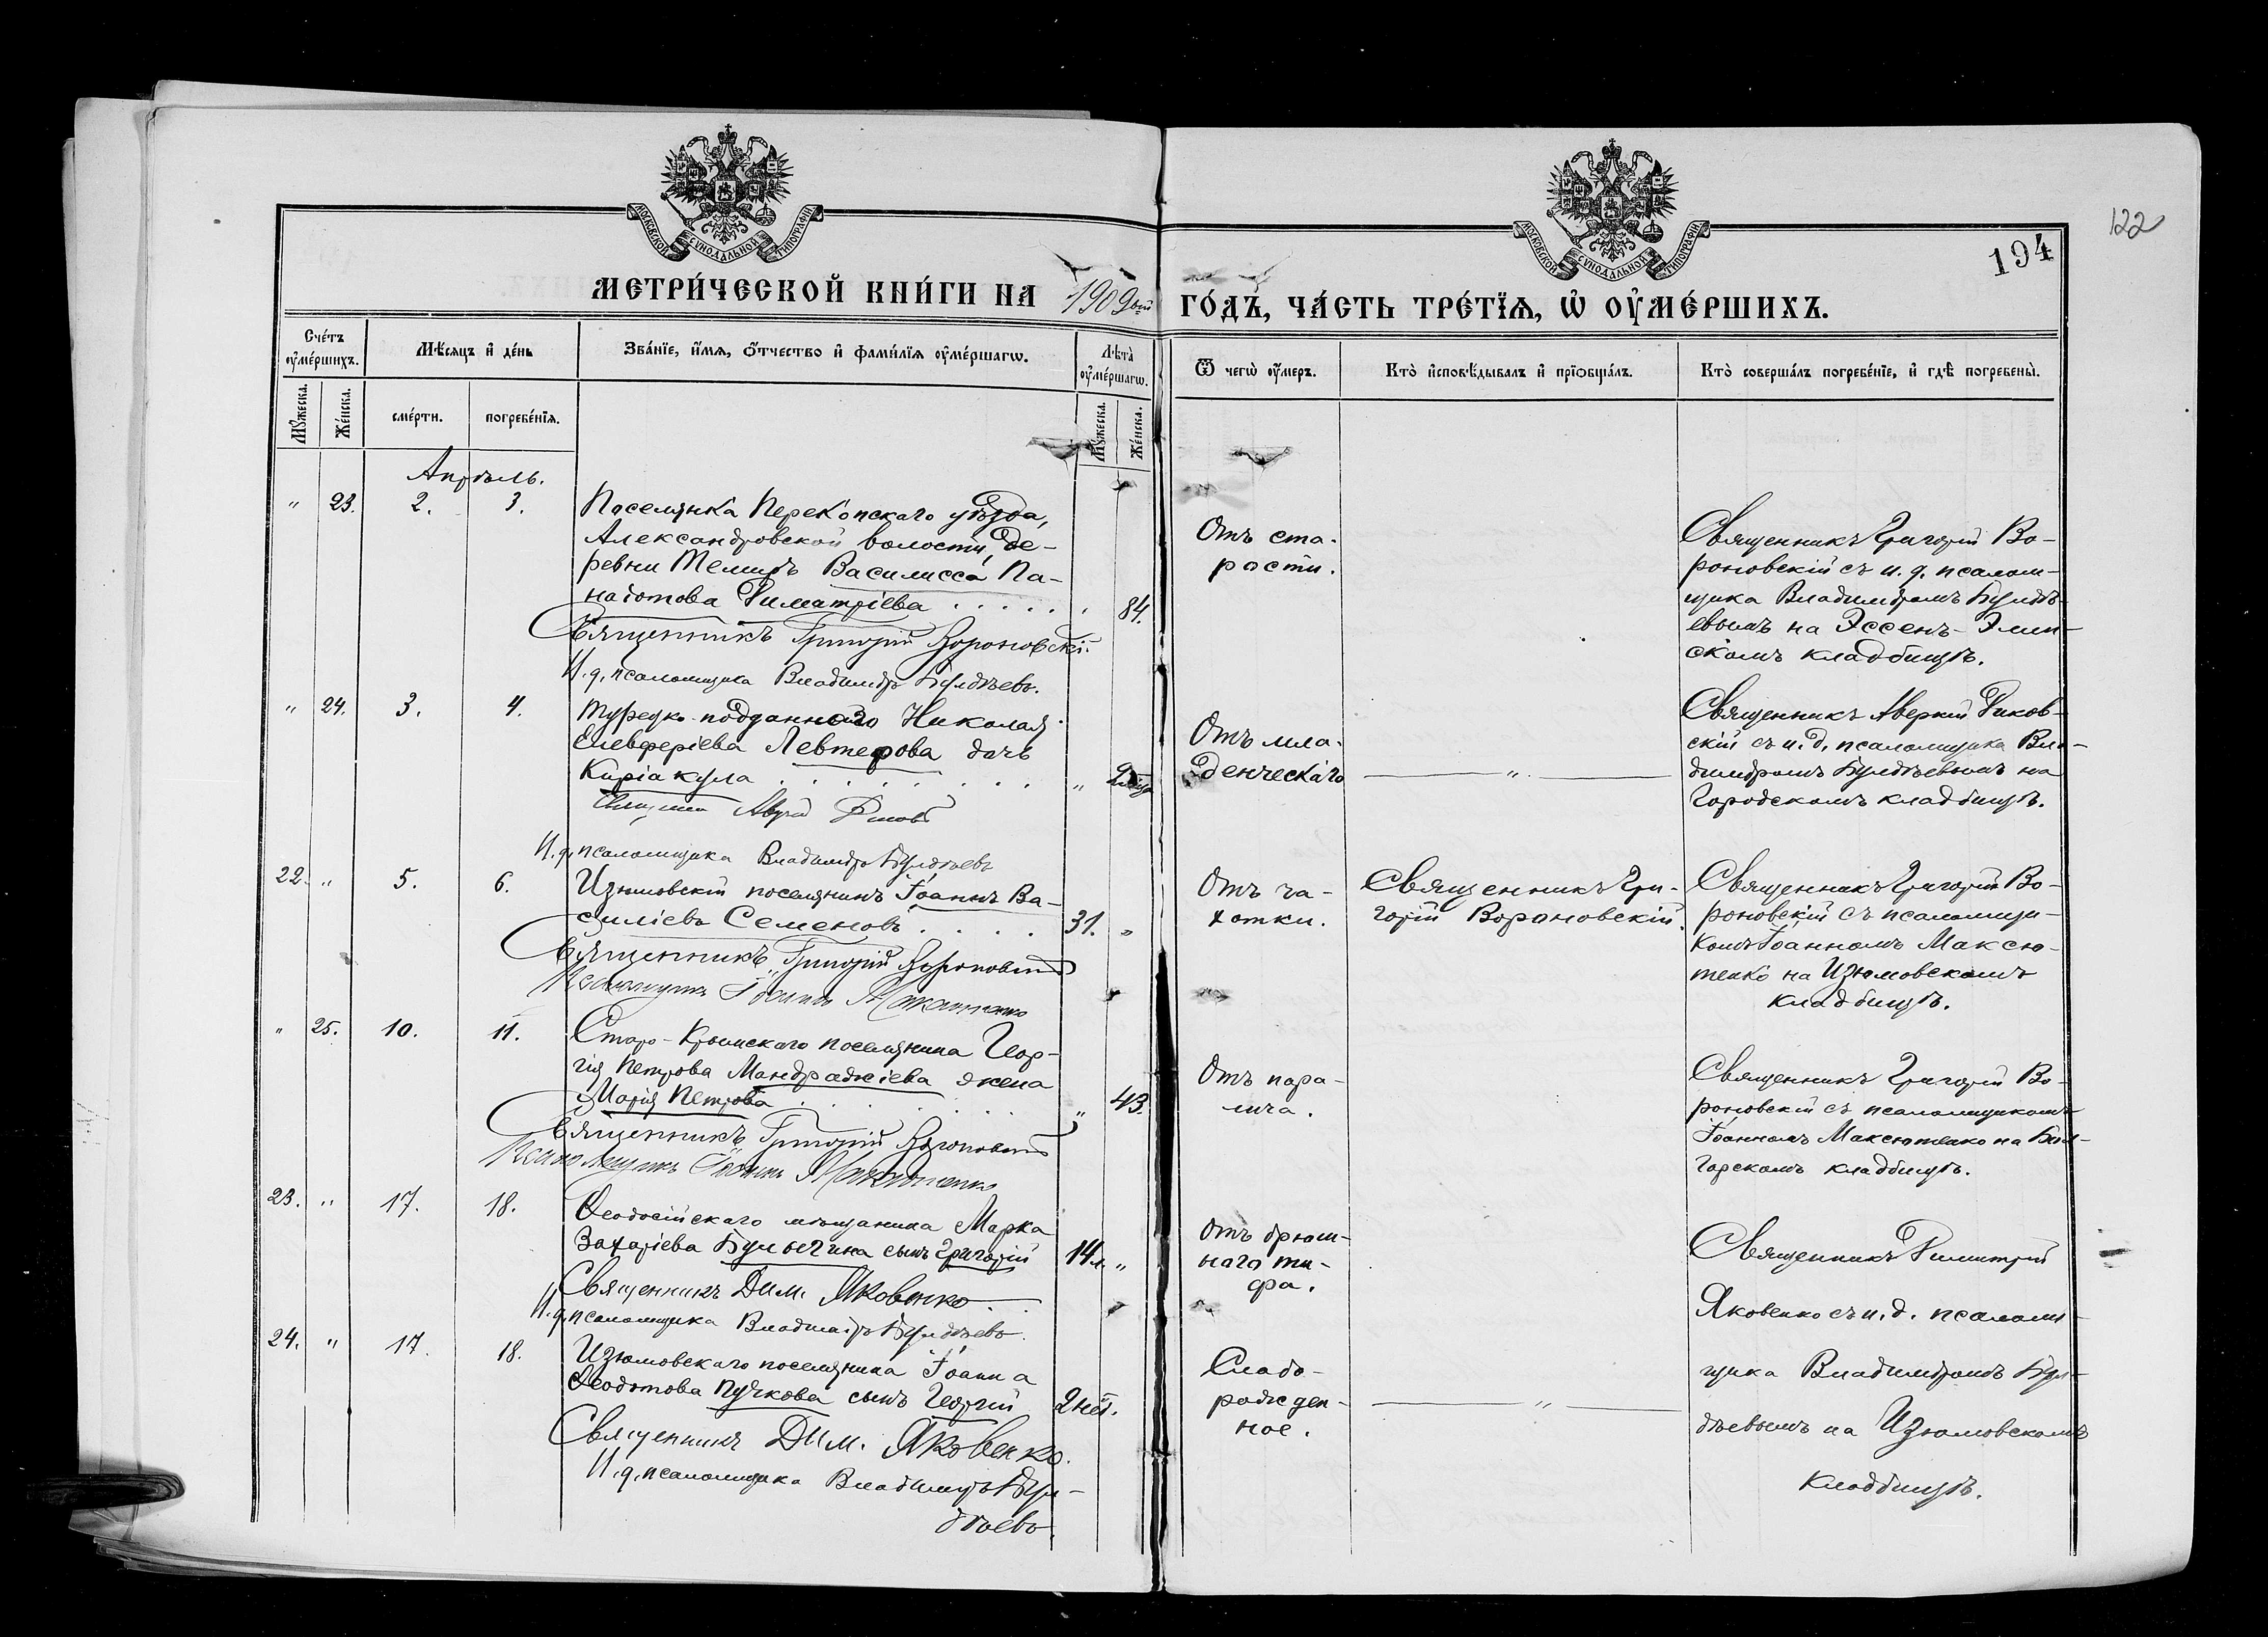 МОСКОВСКОЙ СѴНОДАЛЬНОЙ ТИПОГРАФІИ
МОСКОВСКОЙ СѴНОДАЛЬНОЙ ТИПОГРАФІИ
122
194
МЕТРИ́ЧЕСКОЙ КНИ́ГИ НА 1909ый ГО́ДЪ, ЧА́СТЬ ТРЕ́ТЇѦ, Ѡ҆ ОУ҆МЕ́РШИХЪ.
Сче́тъ оу҆ме́ршихъ.
Мѣ́сѧцъ и҆ де́нь
Зва́нїе, и҆́мѧ, ѻ҆́тчество и҆ фами́лїѧ оу҆ме́ршагѡ.
Лѣта̀ оу҆ме́ршагѡ.
Ѿ чегѡ̀ оу҆́меръ.
Кто̀ и҆сповѣ́дывалъ и҆ прїѻбща́лъ.
Кто̀ соверша́лъ погребе́нїе, и҆ гдѣ̀ погребены̀.
Мꙋ́жеска.
Же́нска.
сме́рти.
погребе́нїѧ.
Мꙋ́жеска.
Же́нска.
Апрѣль.
" 23. 2. 3.
Поселянка Перекопскаго уѣзда,
Александровской волости, де-
ревни Темиръ Василисса Па-
наіотова Димитріева . . . . . . 84.
Священникъ Григорій Вороновскій.
И. д. псаломщика Владимiръ Булдѣевъ.
Отъ ста-
рости.
Священникъ Григорій Во-
роновскій съ и. д. псалом-
щика Владиміромъ Булдѣ-
евымъ на Эссенъ-Элин-
скомъ кладбищѣ.
" 24. 3. 4.
Турецко-подданнаго Николая
Елевферіева Левтерова дочь
Киріакула . . . . . . . "
Священникъ
И. д. псаломщика Владимiръ Булдѣевъ
Отъ мла-
денческаго
"
Священникъ Аверкій Диков-
скій съ и. д. псаломщика Вла-
диміромъ Булдѣевымъ на
Городскомъ кладбищѣ.
22. " 5. 6.
Изюмовскій поселянинъ Іоаннъ Ва-
силіевъ Семеновъ . . . . 31. "
Священникъ Григорій Вороновскій
Псаломщикъ Іоаннъ Максютенко
Отъ ча-
хотки.
Священникъ Гри-
горій Вороновскій.
Священникъ Григорій Во-
роновскій съ псаломщи-
комъ Іоанномъ Максю-
тенко на Изюмовскомъ
кладбищѣ.
" 25. 10. 11.
Старо-Крымскаго поселянина Геор-
гія Петрова Мандраджіева жена
Марія Петрова . . . . . . " 43.
Священникъ Григорій Вороновскій
Псаломщикъ Іоаннъ Максютенко
Отъ пара-
лича.
Священникъ Григорій Во-
роновскій съ псаломщикомъ
Іоанномъ Максютенко на Бол-
гарскомъ кладбищѣ.
23. " 17. 18.
Ѳеодосійскаго мѣщанина Марка
Захаріева Булычина сынъ Григорій 14 л. "
Священникъ Дим. Яковенко . .
И. д. псаломщика Владимiръ Булдѣевъ.
Отъ брюш-
наго ти-
фа.
Священникъ Димитрій
Яковенко съ и. д. псалом-
щика Владиміромъ Бул-
дѣевымъ на Изюмовскомъ
кладбищѣ.
24. " 17. 18.
Изюмовскаго поселянина Іоанна
Ѳеодотова Пучкова сынъ Георгій 2 нед.
Священникъ Дим. Яковенко.
И. д. псаломщика Владимiръ Бул-
дѣевъ.
Слабо-
рожден-
ное.
"